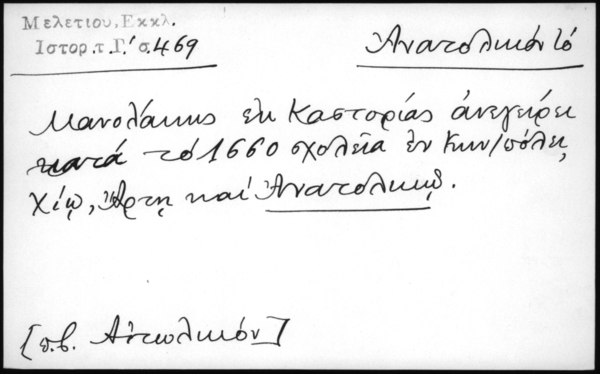 Μελετίου, Εκκλ.
Ιστορ. τ. Γ.' σ. 469
Ἀνατολικόν τό
Μανολάκης ἐκ Καστορίας ἀνεγείρει
κατά τό 1660 σχολεῖα ἐν Κων/πόλει,
Χίῳ, Ἄρτῃ καί Ἀνατολικῷ.
[π.β. Αἰτωλικόν]